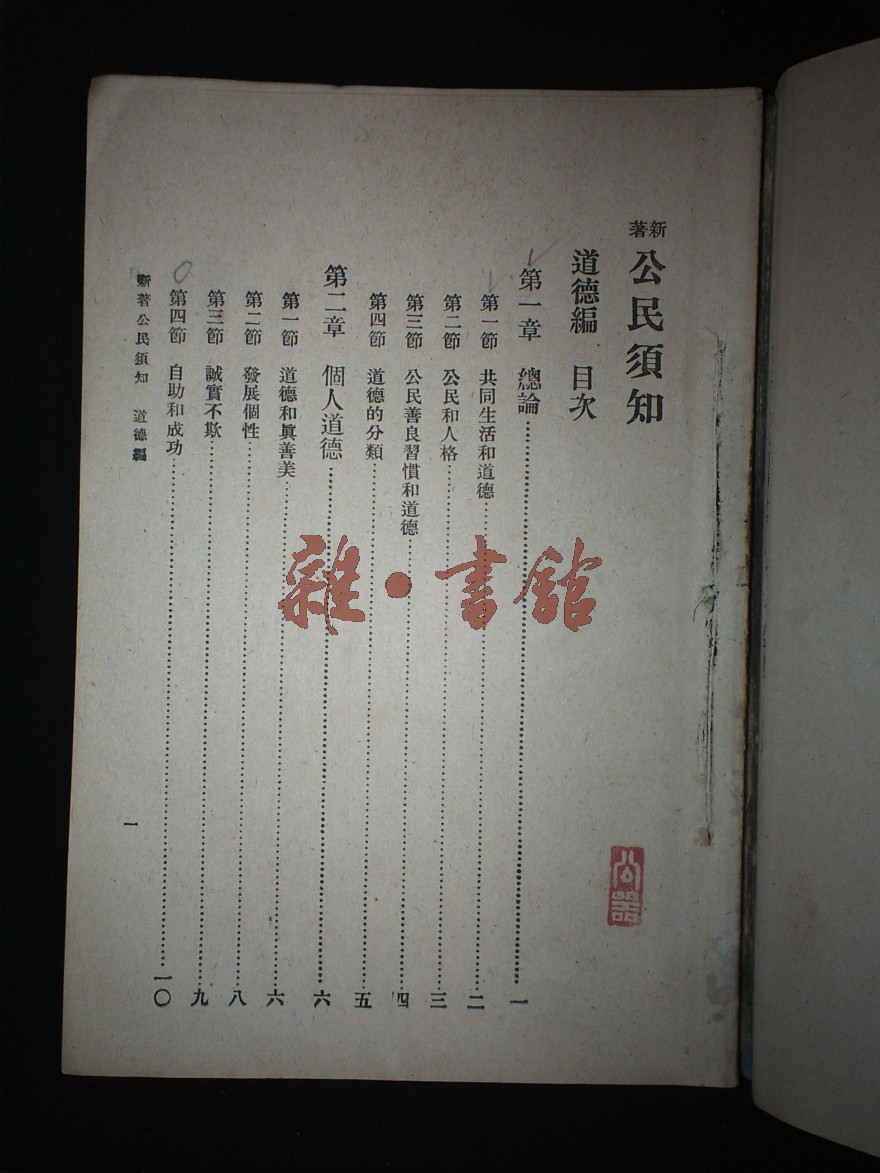 新著 公民須知
道德編 目次
第一章 總論 一
第一節 共同生活和道德 二
第二節 公民和人格 三
第三節 公民善良習慣和道德 四
第四節 道德的分類 五
第二章 個人道德 六
第一節 道德和眞善美 六
第二節 發展個性 八
第三節 誠實不欺 九
第四節 自助和成功 一〇
新著公民須知 道德編 一
雜·書館